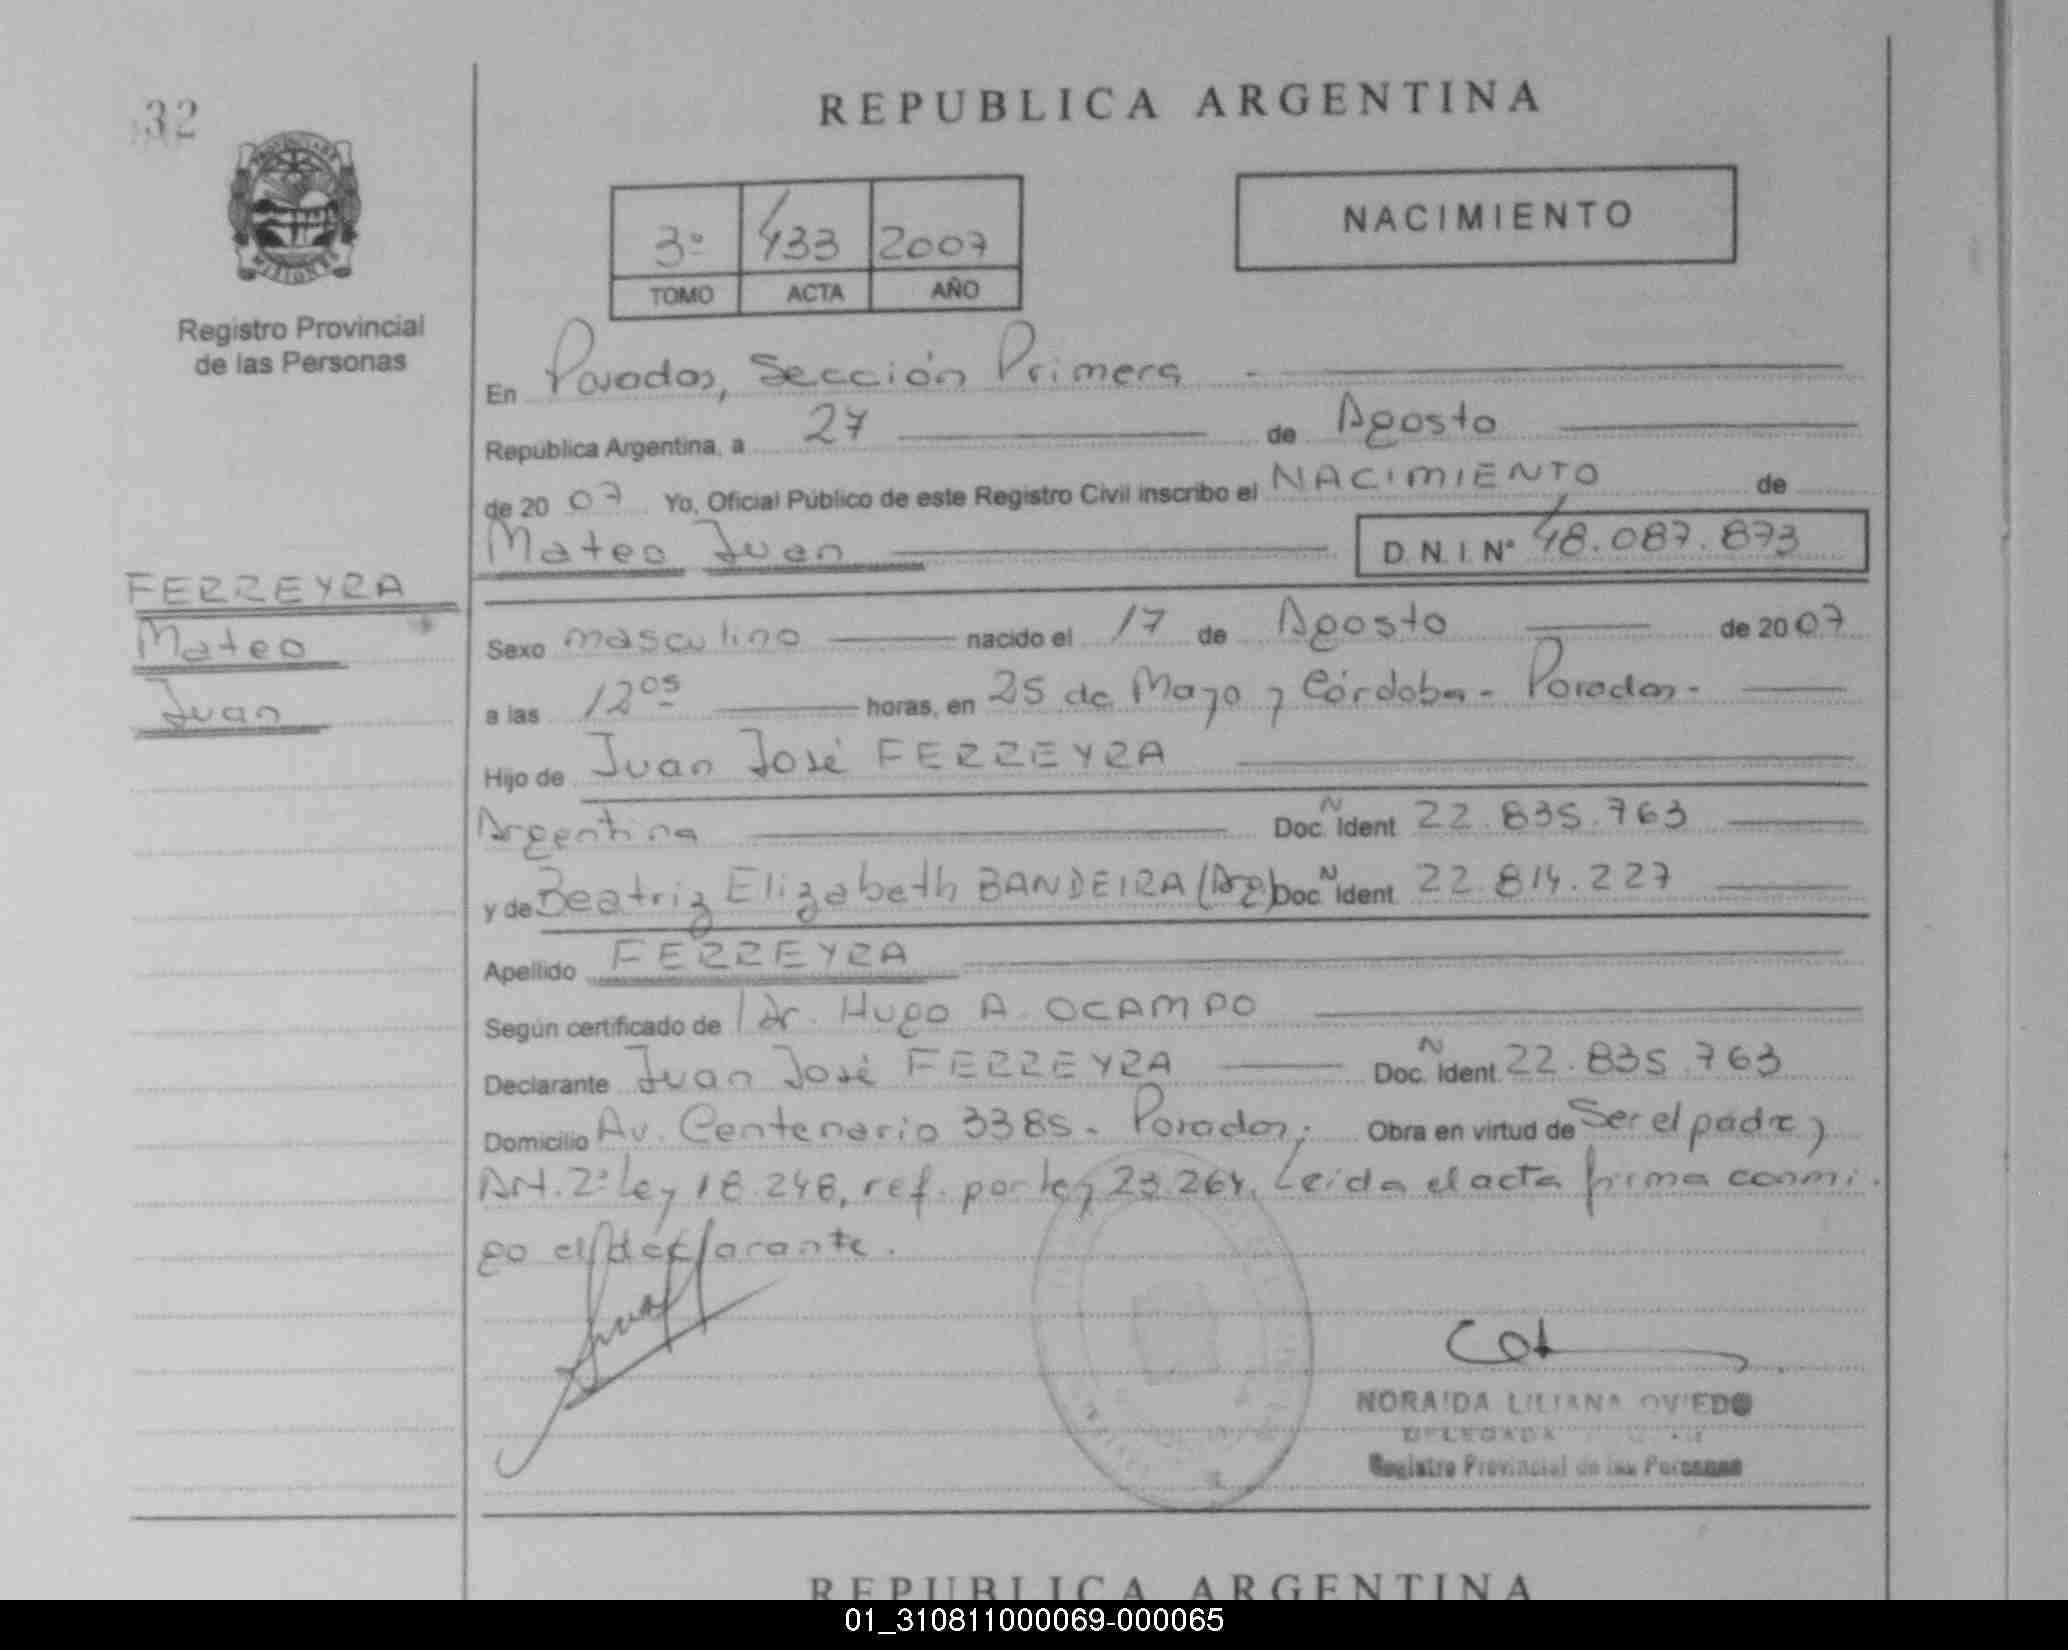 32
REPUBLICA ARGENTINA
PROVINCIA DE
MISIONES
Registro Provincial
de las Personas
3º 433 2007
TOMO ACTA AÑO
NACIMIENTO
En Posadas, Sección Primera
República Argentina, a 27 de Agosto
de 2007 Yo, Oficial Público de este Registro Civil inscribo el NACIMIENTO de
Mateo Juan D.N.I. Nº 48.087.873
FERREYRA
Mateo
Juan
Sexo masculino nacido el 17 de Agosto de 2007
a las 12 05 horas, en 25 de Mayo y Córdoba - Posadas -
Hijo de Juan José FERREYRA
Argentina Doc. N Ident. 22.835.763
y de Beatriz Elizabeth BANDEIRA (Arg) Doc. N Ident. 22.814.227
Apellido FERREYRA
Según certificado de / Dr. Hugo A. OCAMPO
Declarante Juan José FERREYRA Doc. N Ident. 22.835.763
Domicilio Av. Centenario 3385 - Posadas; Obra en virtud de Ser el padre y
Art. 2º Ley 18.248, ref. por ley 23.264. Leida el acta firma conmi
go el declarante.
NORAIDA LILIANA OVIEDO
DELEGADA
Registro Provincial de las Personas
REPUBLICA ARGENTINA
01_310811000069-000065